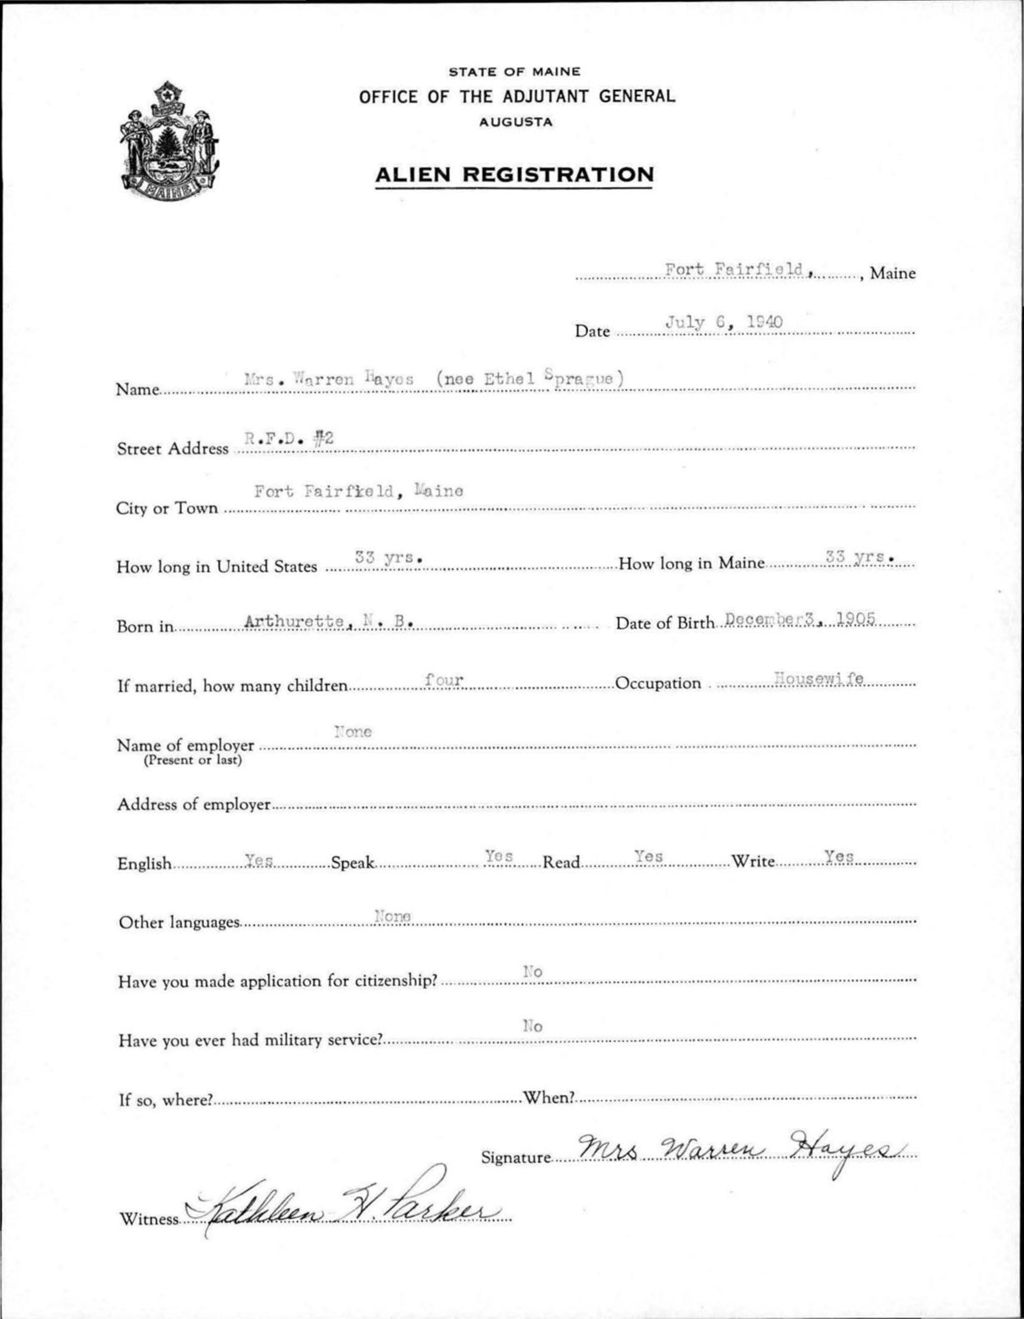 STATE OF MAINE
OFFICE OF THE ADJUTANT GENERAL
AUGUSTA
ALIEN REGISTRATION
MAINE
Fort Fairfield, , Maine
Date July 6, 1940
Name Mrs. Warren Hayes (nee Ethel Sprague)
Street Address R.F.D. #2
City or Town Fort Fairfield, Maine
How long in United States 33 yrs. How long in Maine 33 yrs.
Born in Arthurette, N. B. Date of Birth December3, 1905
If married, how many children four Occupation Housewife
Name of employer None
(Present or last)
Address of employer
English Yes Speak Yes Read Yes Write Yes
Other languages None
Have you made application for citizenship? No
Have you ever had military service? No
If so, where? When?
Signature Mrs Warren Hayes
Witness Kathleen H. Parker